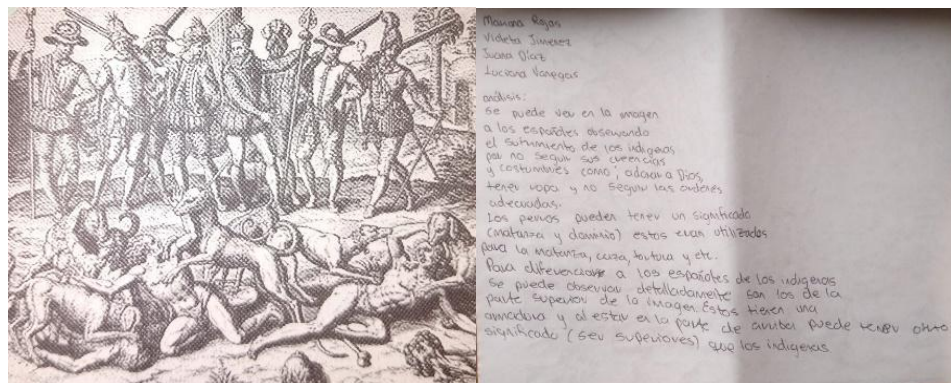 Mariana Rojas
Violeta Jimenez
Juana Díaz
Luciana Vanegas
análisis:
se puede ver en la imagen
a los españoles observando
el sufrimiento de los indigenas
por no seguir sus creencias
y costumbres como; adorar a Dios,
tener ropa y no seguir las ordenes
adecuadas.
Los perros pueden tener un significado
(matanza y dominio) estos eran utilizados
para la matanza, caza, tortura y etc.
Para diferenciar a los españoles de los indigenas
se puede observar detalladamente son los de la
parte superior de la imagen. Estos tienen una
armadura y al estar en la parte de arriba puede tener otro
significado (ser superiores) que los indigenas